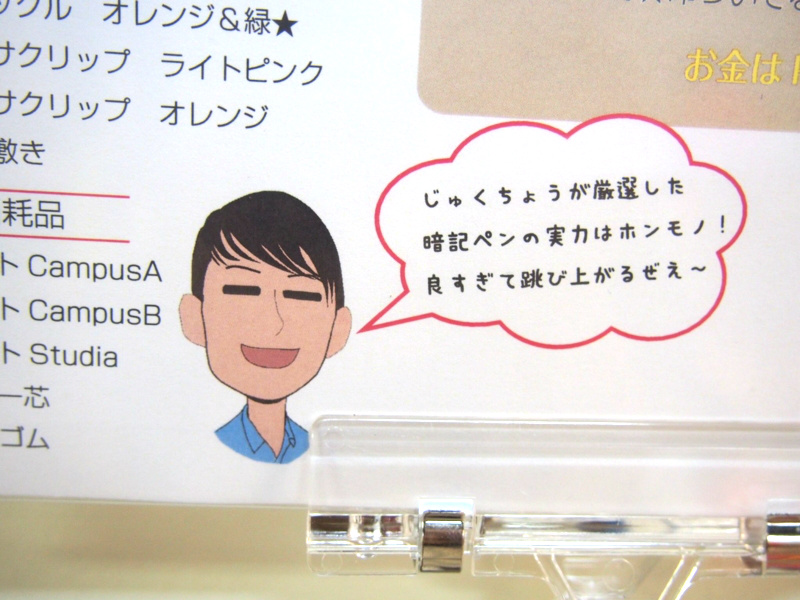 ックル オレンジ＆緑★
サクリップ ライトピンク
サクリップ オレンジ
敷き
耗品
ト CampusA
ト CampusB
ト Studia
ー芯
ゴム
お金は
じゅくちょうが厳選した
暗記ペンの実力はホンモノ！
良すぎて跳び上がるぜえ～